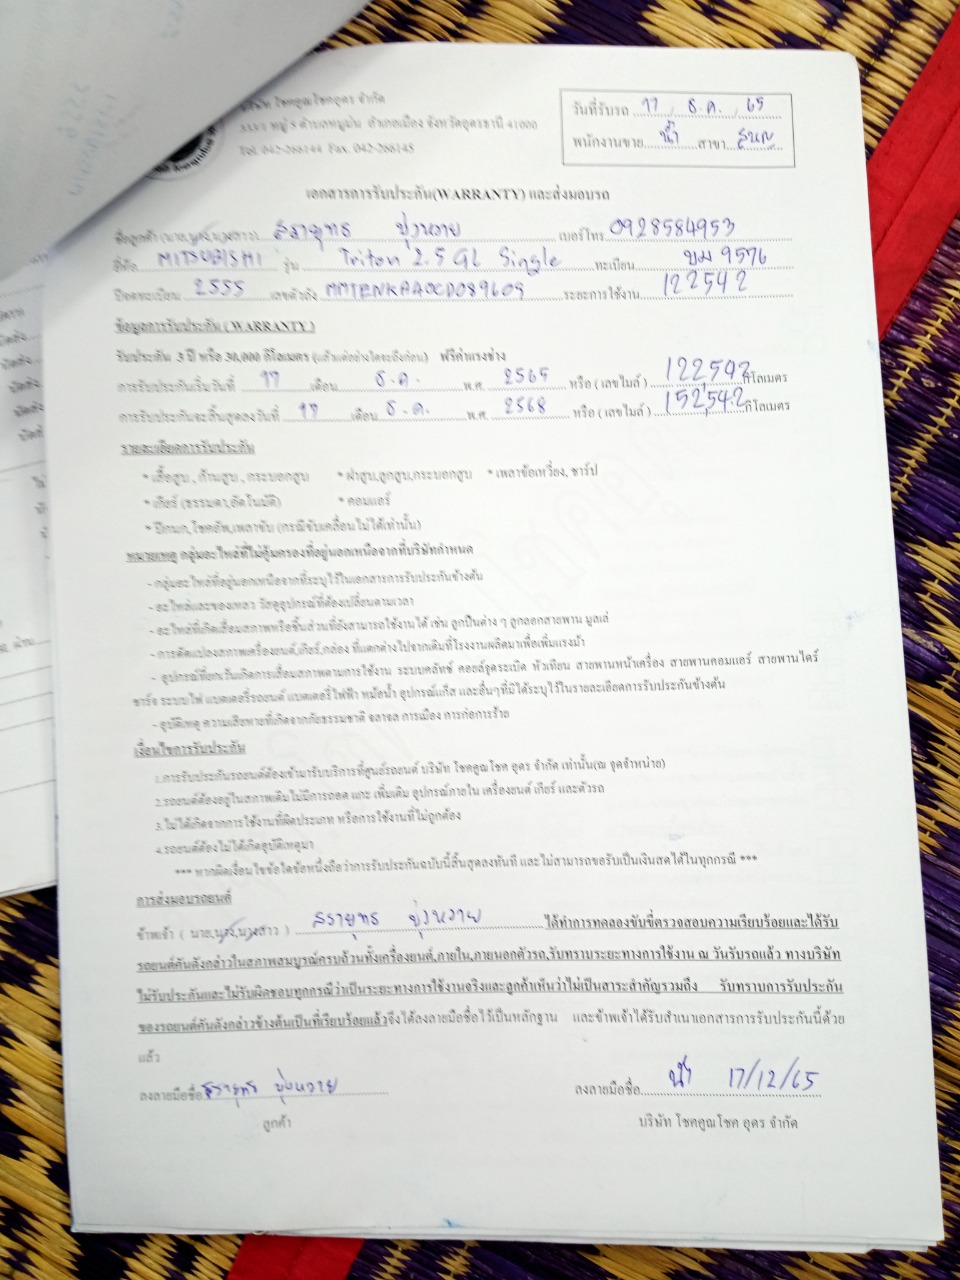 บริษัท โชคคูณโชคอุดร จำกัด
หมู่ 5 ตำบลหมูม่น อำเภอเมือง จังหวัดอุดรธานี 41000
Tel. 042-266144 Fax. 042-266145
วันที่รับรถ 17 / ธ.ค. / 65
พนักงานขาย น้ำ สาขา
เอกสารการรับประกัน(WARRANTY) และส่งมอบรถ
ชื่อลูกค้า (นาย,นาง,นางสาว) สรายุทธ เบอร์โทร 0928584953
ยี่ห้อ MITSUBISHI รุ่น Triton 2.5 GL Single ทะเบียน บม 9576
ปีจดทะเบียน 2555 เลขตัวถัง MMTENKA40CD089609 ระยะการใช้งาน 122542
ข้อมูลการรับประกัน ( WARRANTY )
รับประกัน 3 ปี หรือ 30,000 กิโลเมตร (แล้วแต่อย่างใดจะถึงก่อน) ฟรีค่าแรงช่าง
การรับประกันเริ่มวันที่ 17 เดือน ธ.ค. พ.ศ. 2565 หรือ ( เลขไมล์ ) 122,542 กิโลเมตร
การรับประกันจะสิ้นสุดลงวันที่ 17 เดือน ธ.ค. พ.ศ. 2568 หรือ ( เลขไมล์ ) 152,542 กิโลเมตร
รายละเอียดการรับประกัน
* เสื้อสูบ , ก้านสูบ , กระบอกสูบ * ฝาสูบ,ลูกสูบ,กระบอกสูบ * เพลาข้อเหวี่ยง, ชาร์ป
* เกียร์ (ธรรมดา,อัตโนมัติ) * คอมแอร์
* ปีกนก, โชคอัพ,เพลาขับ (กรณีขับเคลื่อนไม่ได้เท่านั้น)
หมายเหตุ กลุ่มอะไหล่ที่ไม่คุ้มครองที่อยู่นอกเหนือจากที่บริษัทกำหนด
- กลุ่มอะไหล่ที่อยู่นอกเหนือจากที่ระบุไว้ในเอกสารการรับประกันข้างต้น
- อะไหล่และของเหลว วัสดุอุปกรณ์ที่ต้องเปลี่ยนตามเวลา
- อะไหล่ที่เกิดเสื่อมสภาพหรือชิ้นส่วนที่ยังสามารถใช้งานได้ เช่น ลูกปืนต่าง ๆ ลูกลอกสายพาน มูลเล่
- การดัดแปลงสภาพเครื่องยนต์,เกียร์,กล่อง ที่แตกต่างไปจากเดิมที่โรงงานผลิตมาเพื่อเพิ่มแรงม้า
- อุปกรณ์ที่ยกเว้นเกิดการเสื่อมสภาพตามการใช้งาน ระบบคลัทช์ คอยล์จุดระเบิด หัวเทียน สายพานหน้าเครื่อง สายพานคอมแอร์ สายพานไดร์
ชาร์จ ระบบไฟ แบตเตอรี่รถยนต์ แบตเตอรี่ไฟฟ้า หม้อน้ำ อุปกรณ์แก๊ส และอื่นๆที่มิได้ระบุไว้ในรายละเอียดการรับประกันข้างต้น
- อุบัติเหตุ ความเสียหายที่เกิดจากภัยธรรมชาติ จลาจล การเมือง การก่อการร้าย
เงื่อนไขการรับประกัน
1.การรับประกันรถยนต์ต้องเข้ามารับบริการที่ศูนย์รถยนต์ บริษัท โชคคูณโชค อุดร จำกัด เท่านั้น(ณ จุดจำหน่าย)
2.รถยนต์ต้องอยู่ในสภาพเดิมไม่มีการถอด แกะ เพิ่มเติม อุปกรณ์ภายใน เครื่องยนต์ เกียร์ และตัวรถ
3.ไม่ได้เกิดจากการใช้งานที่ผิดประเภท หรือการใช้งานที่ไม่ถูกต้อง
4.รถยนต์ต้องไม่ได้เกิดอุบัติเหตุมา
*** หากผิดเงื่อนไขข้อใดข้อหนึ่งถือว่าการรับประกันฉบับนี้สิ้นสุดลงทันที และไม่สามารถขอรับเป็นเงินสดได้ในทุกกรณี ***
การส่งมอบรถยนต์
ข้าพเจ้า ( นาย,นาง,นางสาว ) สรายุทธ ได้ทำการทดลองขับขี่ตรวจสอบความเรียบร้อยและได้รับ
รถยนต์คันดังกล่าวในสภาพสมบูรณ์ครบถ้วนทั้งเครื่องยนต์,ภายใน,ภายนอกตัวรถ,รับทราบระยะทางการใช้งาน ณ วันรับรถแล้ว ทางบริษัท
ไม่รับประกันและไม่รับผิดชอบทุกกรณีว่าเป็นระยะทางการใช้งานจริงและลูกค้าเห็นว่าไม่เป็นสาระสำคัญรวมถึง รับทราบการรับประกัน
ของรถยนต์คันดังกล่าวข้างต้นเป็นที่เรียบร้อยแล้วจึงได้ลงลายมือชื่อไว้เป็นหลักฐาน และข้าพเจ้าได้รับสำเนาเอกสารการรับประกันนี้ด้วย
แล้ว
ลงลายมือชื่อ สรายุทธ ลงลายมือชื่อ น้ำ 17/12/65
ลูกค้า บริษัท โชคคูณโชค อุดร จำกัด